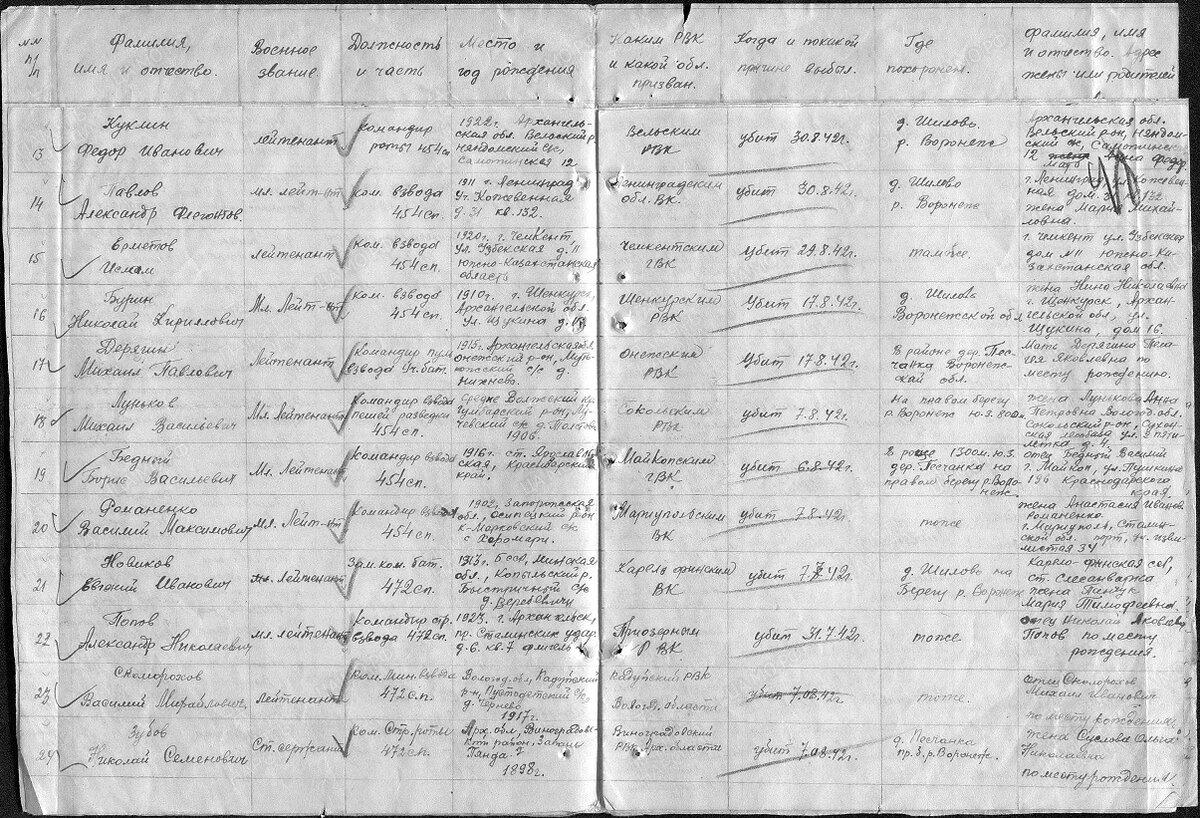 №№ п/п
Фамилия, имя и отчество.
Военное звание.
Должность и часть
Место и год рождения
Каким РВК и какой обл. призван.
Когда и по какой причине выбыл.
Где похоронен.
Фамилия, имя и отчество. Адрес жены или родителей
13
Куклин
Федор Иванович
лейтенант
Командир
роты 454 сп
1922г. Архангель-
ская обл. Вельский р.
Няндомский с/с,
Самотинская 12
Вельским
РВК
убит 30.8.42г.
д. Шилово
р. Воронеж
Архангельская обл.
Вельский р-он, Няндом-
ский с/с, Самотинская
12
14
Павлов
Александр Флегонтов.
мл. лейт-нт
ком. взвода
454 сп.
1911 г. Ленинград
Ул. Кожевенная
д. 31 кв. 132.
Ленинградским
обл. ВК.
убит 30.8.42г.
д. Шилово
р. Воронеж
г. Ленинград
дом. 31 кв. 132
жена Мария Михай-
ловна.
15
Ерметов
Ислам
лейтенант
ком. взвода
454 сп.
1920г. г. Чемкент,
ул. Узбекская д. 11
Южно-Казахстанская
область
Чемкентским
ГВК
Убит 29.8.42г.
там же.
г. Чемкент ул. Узбекская
дом №11 Южно-Ка-
захстанская обл.
16
Бурин
Николай Кириллович
Мл. Лейт-нт
ком. взвода
454 сп.
1910г. г. Шенкурск,
Архангельской обл.
Ул. Щукина д. 16
Шенкурским
РВК
Убит 17.8.42г.
д. Шилово
Воронежской обл.
жена Нина Николаевна
г. Шенкурск, Архан-
гельской обл, ул.
Щукина, дом 16.
17
Дерягин
Михаил Павлович
Лейтенант
Командир пул.
взвода Уч. бат.
1915г. Архангельская обл.
Онежский р-он,
с/с д.
Нижнево.
Онежский
РВК
Убит 17.8.42г.
В районе дер. Пес-
чанка Воронеж-
ской обл.
Мать Дерягина Пела-
гея Яковлевна по
месту рождению.
18
Луньков
Михаил Васильевич
Мл. Лейтенант
Командир взвода
пешей разведки
454 сп.
Средне Волжский кр.
р-он,
с/с д.
1906.
Сокольским
РВК
убит 7.8.42г.
На правом берегу
р. Воронеж ю.з. 800м.
жена Лунькова Анна
Петровна Вологод. обл.
Сокольский р-он, Сухон-
ская ул. 2 пяти-
летка д. 4.
19
Бедный
Борис Васильевич
Мл. Лейтенант
Командир взвода
454 сп.
1916г. ст. Ярослав-
ская, Краснодарский
край.
Майкопским
ГВК
убит 6.8.42г.
В роще 1300м. ю.з.
дер. Песчанка на
правом берегу р. Воро-
неж.
отец Бедный Василий
г. Майкоп, ул. Пушкина
196 Краснодарского
края.
20
Романенко
Василий Максимович
Мл. Лейт-нт
Командир взвода
454 сп.
1902г. Запорожская
обл., Осипецкий р-он
с/с
Мариупольским
ВК
убит 7.8.42г.
тоже
жена Анастасия Иванов.
Романенко
г. Мариуполь, Сталин-
ской обл. порт,
34
21
Новиков
Евгений Иванович
мл. Лейтенант
Зам. ком. бат.
472 сп.
1913г. БССР, Минская
обл., Копыльский р.
Быстричный с/с
д. Веребейчи
Карело финским
ВК
убит 7.8.42г.
д. Шилово на
Берегу р. Воронеж
Карело-финская ССР,
ст.
жена Панчук
Мария Тимофеевна.
22
Попов
Александр Николаевич
мл. лейтенант
Командир стр.
взвода 472 сп.
1923. г. Архангельск,
пр. Сталинских удар.
д. 6. кв. 7 флигель
Приозерным
РВК
убит 31.7.42г.
тоже.
отец Николай Яковлев.
Попов по месту
рождения.
23
Скоморохов
Василий Михайлович
Лейтенант
Ком. Мин. взвода
472 с.п.
Вологод. обл, Кадуйский
р-н, с/с
д. Чернево
1917г.
Кадуйский РВК
Волог. области
убит 7.08.42г.
тоже
отец Скоморохов
Михаил Иванович
по месту рождения
24
Зубов
Николай Семенович
Ст. сержант
Ком. Стр. роты
472 сп.
Арх. обл, Виноградов-
ский район, Запань
Пянда
1898г.
Виноградовский
РВК Арх. области
убит 7.08.42г.
д. Песчанка
пр. б. р. Воронеж.
жена Суслова Ольга
Николаевна
по месту рождения.